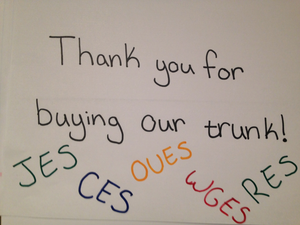 Thank you for
buying our trunk!
JES CES OUES WGES RES